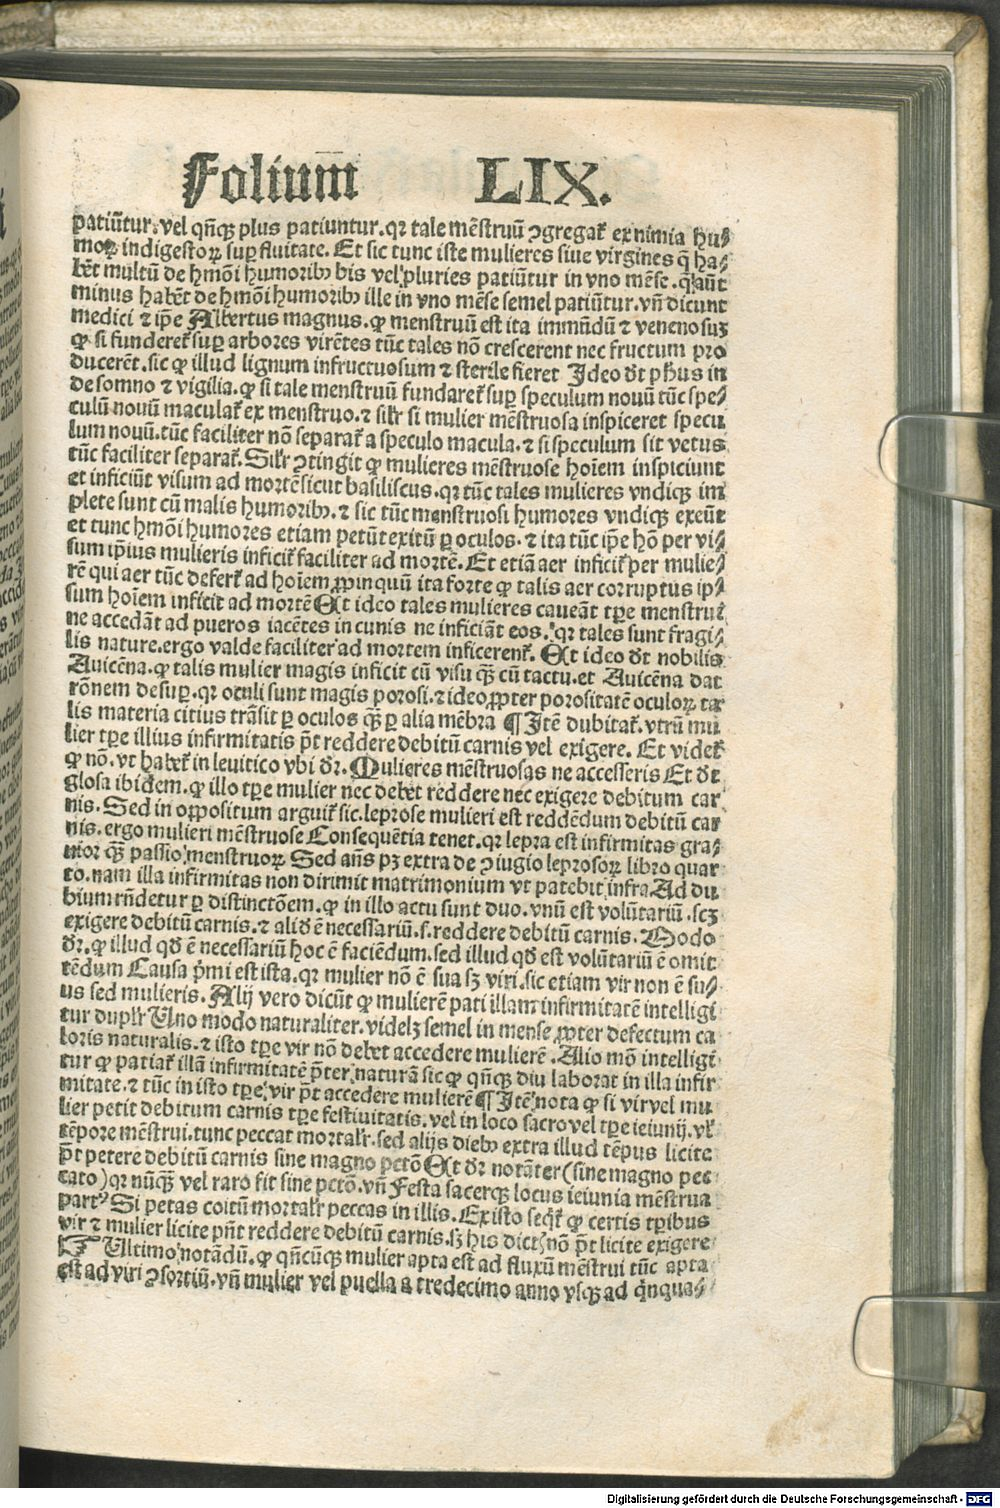 Folium LIX.
patiūtur. vel qñqꝫ plus patiuntur. qꝛ tale mēstruū ꝯgregat᷑ ex nimia hu⸗
moꝝ indigestoꝝ suꝑfluitate. Et sic tunc iste mulieres siue virgines q̄ ha⸗
bēt multū de hmōi humoribꝰ bis vel pluries patiūtur in vno mēse. q̄ aūt
minus habēt de hmōi humoribꝰ ille in vno mēse semel patiūtur. vñ dicunt
medici ⁊ ip̄e Albertus magnus. ꝙ menstruū est ita immūdū ⁊ venenosuꝫ
ꝙ si funderet᷑ suꝑ arbores virētes tūc tales nō crescerent nec fructum pro
ducerēt. sic ꝙ illud lignum infructuosum ⁊ sterile fieret Ideo dꝛ pħus in
de somno ⁊ vigilia. ꝙ si tale menstruū fundaret᷑ suꝑ speculum nouū tūc spe⸗
culū nouū maculat᷑ ex menstruo. ⁊ silꝛ si mulier mēstruosa inspiceret specu
lum nouū. tūc faciliter nō separat᷑ a speculo macula. ⁊ si speculum sit vetus
tūc faciliter separat᷑. Silꝛ ꝯtingit ꝙ mulieres mēstruose hoīem inspiciunt
et inficiūt visum ad mortē sicut basiliscus. qꝛ tūc tales mulieres vndiqꝫ im
plete sunt cū malis humoribꝰ. ⁊ sic tūc menstruosi humores vndiqꝫ exeūt
et tunc hmōi humores etiam petūt exitū ꝑ oculos. ⁊ ita tūc ip̄e hō per vi⸗
sum ip̄ius mulieris inficit᷑ faciliter ad mortē. Et etiā aer inficit᷑ per mulie⸗
rē qui aer tūc defert᷑ ad hoīem ꝓpinquū ita forte ꝙ talis aer corruptus ip⸗
sum hoīem inficit ad mortē Et ideo tales mulieres caueāt tꝑe menstrui
ne accedāt ad pueros iacētes in cunis ne inficiāt eos. qꝛ tales sunt fragi⸗
lis nature. ergo valde faciliter ad mortem inficerent᷑. Et ideo dꝛ nobilis
Auicēna. ꝙ talis mulier magis inficit cū visu qꝫ̄ cū tactu. et Auicēna dat
rōnem desuꝑ. qꝛ oculi sunt magis porosi. ⁊ ideo ꝓpter porositatē oculoꝝ ta⸗
lis materia citius trāsit ꝑ oculos qꝫ̄ ꝑ alia mēbra ¶ Itē dubitat᷑. vtrū mu
lier tꝑe illius infirmitatis p̄t reddere debitū carnis vel exigere. Et videt᷑
ꝙ nō. vt habet᷑ in leuitico vbi dꝛ. Mulieres mēstruosas ne accesseris Et dꝛ
glosa ibidem. ꝙ illo tꝑe mulier nec debet reddere nec exigere debitum car
nis. Sed in oppositum arguit᷑ sic. leprose mulieri est reddēdum debitū car
nis. ergo mulieri mēstruose Consequētia tenet. qꝛ lepra est infirmitas gra⸗
uior qꝫ̄ passio menstruoꝝ Sed añs pꝫ extra de ꝯiugio leprosoꝝ libro quar
to. nam illa infirmitas non dirimit matrimonium vt patebit infra. Ad du
bium rñdetur ꝑ distinctōem. ꝙ in illo actu sunt duo. vnū est volūtariū. scꝫ
exigere debitū carnis. ⁊ aliđ ē necessariū. s. reddere debitū carnis. Modo
dꝛ. ꝙ illud qđ ē necessariū hoc ē faciēdum. sed illud qđ est volūtariū ē omit
tēdum Causa p̄mi est ista. qꝛ mulier nō ē sua sꝫ viri. sic etiam vir non ē su⸗
us sed mulieris. Alij vero dicūt ꝙ mulierē pati illam infirmitatē intelligi
tur duplꝛ Uno modo naturaliter. videlꝫ semel in mense ꝓpter defectum ca
loris naturalis. ⁊ isto tꝑe vir nō debet accedere mulierē. Alio mō intelligi
tur ꝙ patiat᷑ illā infirmitatē p̄ter naturā sic ꝙ qñqꝫ diu laborat in illa infir
mitate. ⁊ tūc in isto tꝑe vir p̄t accedere mulierē ¶ Itē nota ꝙ si vir vel mu
lier petit debitum carnis tꝑe festiuitatis. vel in loco sacro vel tꝑe ieiunij. vł
tēpore mēstrui. tunc peccat mortalꝛ. sed alijs diebꝰ extra illud tēpus licite
p̄t petere debitū carnis sine magno pctō Et dꝛ notāter (sine magno pec
cato) qꝛ nūqꝫ vel raro fit sine pctō. vñ Festa sacerqꝫ locus ieiunia mēstrua
partꝰ Si petas coitū mortalꝛ peccas in illis. Ex isto seqt᷑ ꝙ certis tꝑibus
vir ⁊ mulier licite pñt reddere debitū carnis. sꝫ his dictꝭ nō p̄t licite exigere
☞ Ultimo notādū. ꝙ qñcūqꝫ mulier apta est ad fluxū mēstrui tūc apta
est ad viri ꝯsortiū. vñ mulier vel puella a tredecimo anno vsqꝫ ad q̄nqua⸗
Digitalisierung gefördert durch die Deutsche Forschungsgemeinschaft - DFG